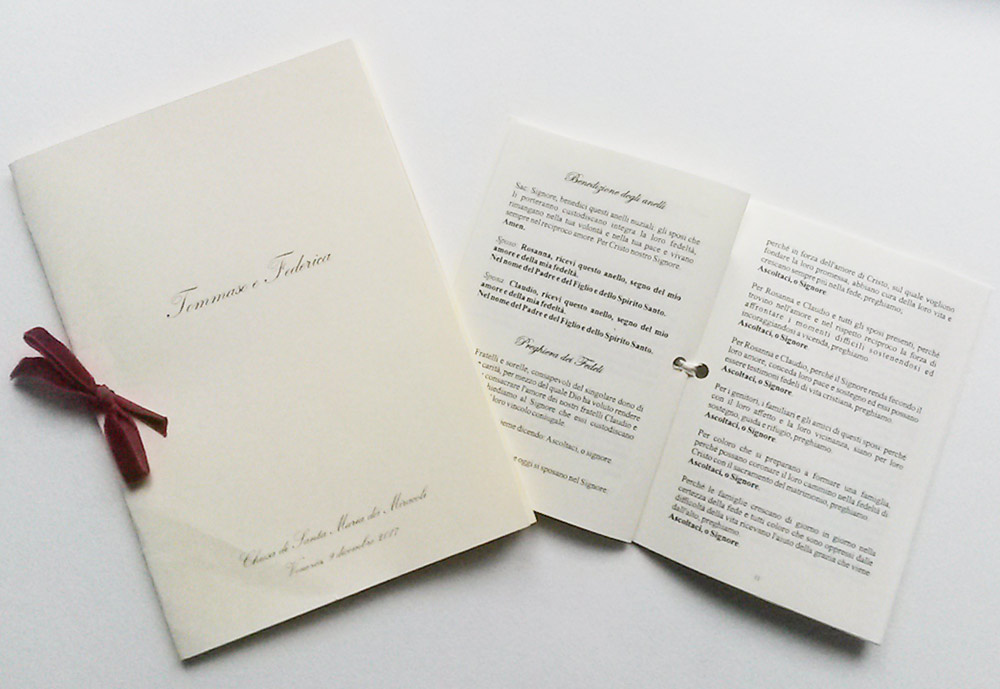 Tommaso e Federica
Chiesa di Santa Maria dei Miracoli
Venezia, 9 dicembre 2017
Benedizione degli anelli
Sac: Signore, benedici questi anelli nuziali: gli sposi che
li porteranno custodiscano integra la loro fedeltà,
rimangano nella tua volontà e nella tua pace e vivano
sempre nel reciproco amore. Per Cristo nostro Signore.
Amen.
Sposo: Rosanna, ricevi questo anello, segno del mio
amore e della mia fedeltà.
Nel nome del Padre e del Figlio e dello Spirito Santo.
Sposa: Claudio, ricevi questo anello, segno del mio
amore e della mia fedeltà.
Nel nome del Padre e del Figlio e dello Spirito Santo.
Preghiera dei Fedeli
Fratelli e sorelle, consapevoli del singolare dono di
carità, per mezzo del quale Dio ha voluto rendere
consacrare l'amore dei nostri fratelli Claudio e
al Signore che essi custodiscano
loro vincolo coniugale.
dicendo: Ascoltaci, o signore.
e oggi si sposano nel Signore.
perché in forza dell'amore di Cristo, sul quale vogliono
fondare la loro promessa, abbiano cura della loro vita e
crescano sempre più nella fede, preghiamo;
Ascoltaci, o Signore.
Per Rosanna e Claudio e tutti gli sposi presenti, perché
trovino nell'amore e nel rispetto reciproco la forza di
affrontare i momenti difficili sostenendosi ed
incoraggiandosi a vicenda, preghiamo.
Ascoltaci, o Signore.
Per Rosanna e Claudio, perché il Signore renda fecondo il
loro amore, conceda loro pace e sostegno ed essi possano
essere testimoni fedeli di vita cristiana, preghiamo.
Ascoltaci, o Signore.
Per i genitori, i familiari e gli amici di questi sposi, perché
con il loro affetto e la loro vicinanza, siano per loro
sostegno, guida e rifugio, preghiamo.
Ascoltaci, o Signore.
Per coloro che si preparano a formare una famiglia,
perché possano coronare il loro cammino nella fedeltà di
Cristo con il sacramento del matrimonio, preghiamo.
Ascoltaci, o Signore.
Perché le famiglie crescano di giorno in giorno nella
certezza della fede e tutti coloro che sono oppressi dalle
difficoltà della vita ricevano l'aiuto della grazia che viene
dall'alto, preghiamo.
Ascoltaci, o Signore.